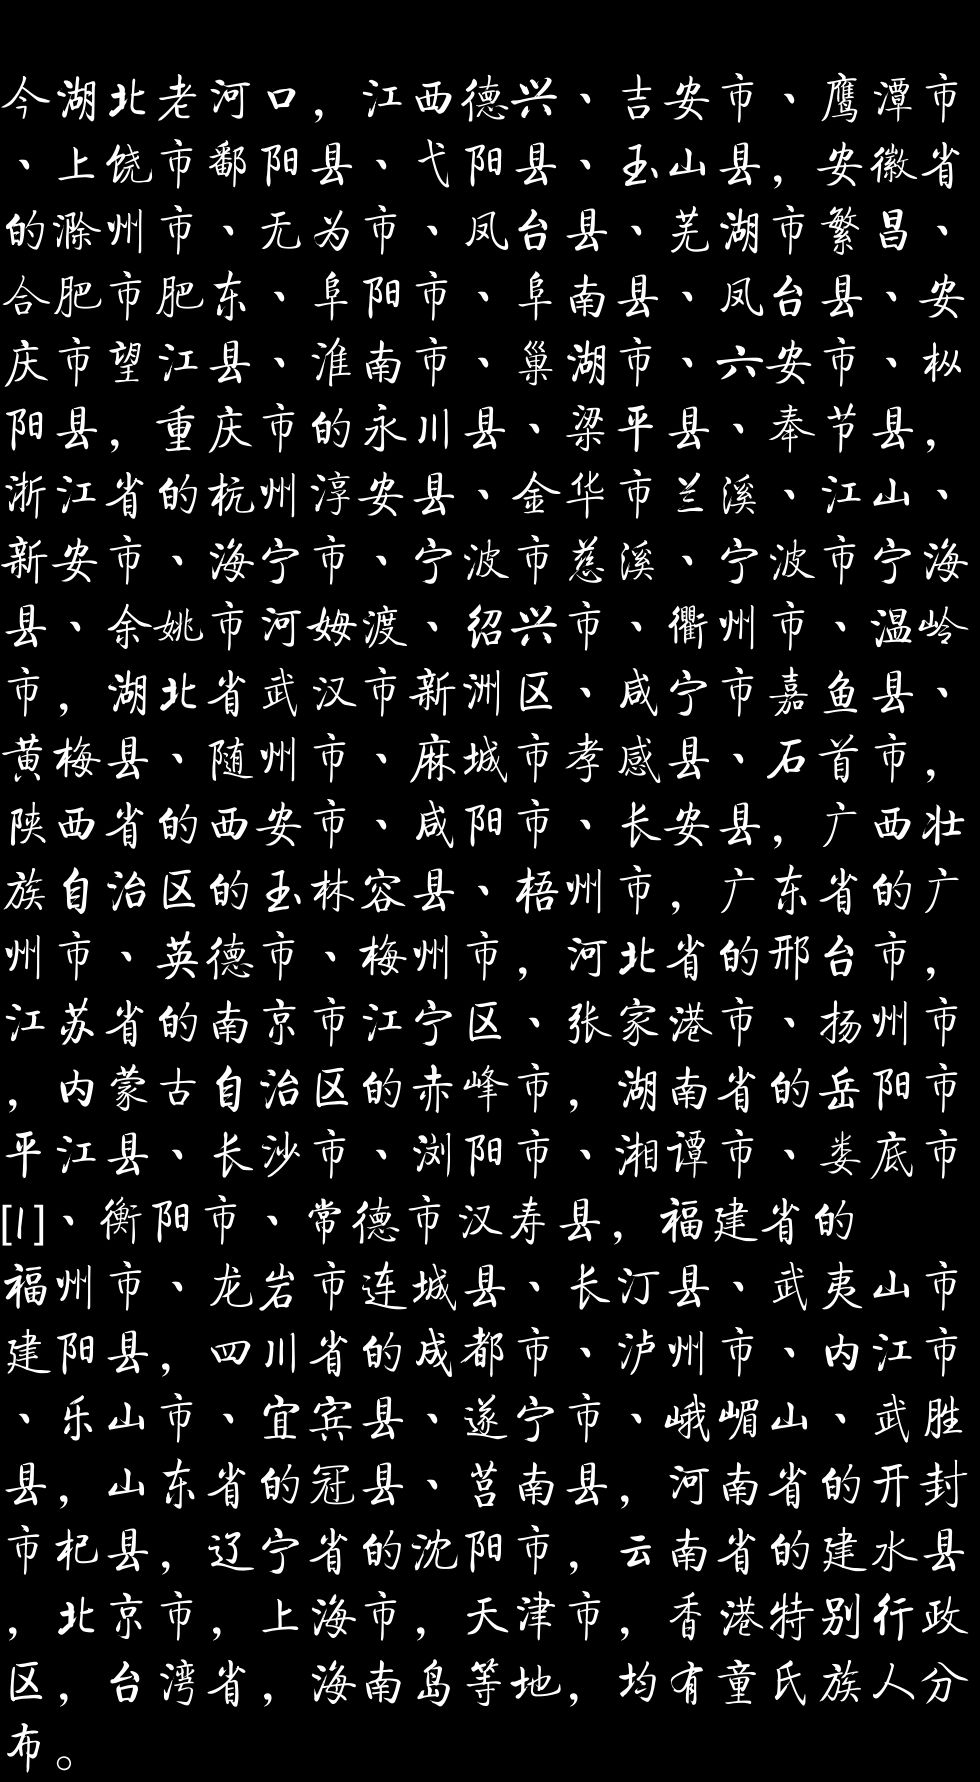 今湖北老河口，江西德兴、吉安市、鹰潭市
、上饶市鄱阳县、弋阳县、玉山县，安徽省
的滁州市、无为市、凤台县、芜湖市繁昌、
合肥市肥东、阜阳市、阜南县、凤台县、安
庆市望江县、淮南市、巢湖市、六安市、枞
阳县，重庆市的永川县、梁平县、奉节县，
浙江省的杭州淳安县、金华市兰溪、江山、
新安市、海宁市、宁波市慈溪、宁波市宁海
县、余姚市河姆渡、绍兴市、衢州市、温岭
市，湖北省武汉市新洲区、咸宁市嘉鱼县、
黄梅县、随州市、麻城市孝感县、石首市，
陕西省的西安市、咸阳市、长安县，广西壮
族自治区的玉林容县、梧州市，广东省的广
州市、英德市、梅州市，河北省的邢台市，
江苏省的南京市江宁区、张家港市、扬州市
，内蒙古自治区的赤峰市，湖南省的岳阳市
平江县、长沙市、浏阳市、湘谭市、娄底市
[1]、衡阳市、常德市汉寿县，福建省的
福州市、龙岩市连城县、长汀县、武夷山市
建阳县，四川省的成都市、泸州市、内江市
、乐山市、宜宾县、遂宁市、峨嵋山、武胜
县，山东省的冠县、莒南县，河南省的开封
市杞县，辽宁省的沈阳市，云南省的建水县
，北京市，上海市，天津市，香港特别行政
区，台湾省，海南岛等地，均有童氏族人分
布。